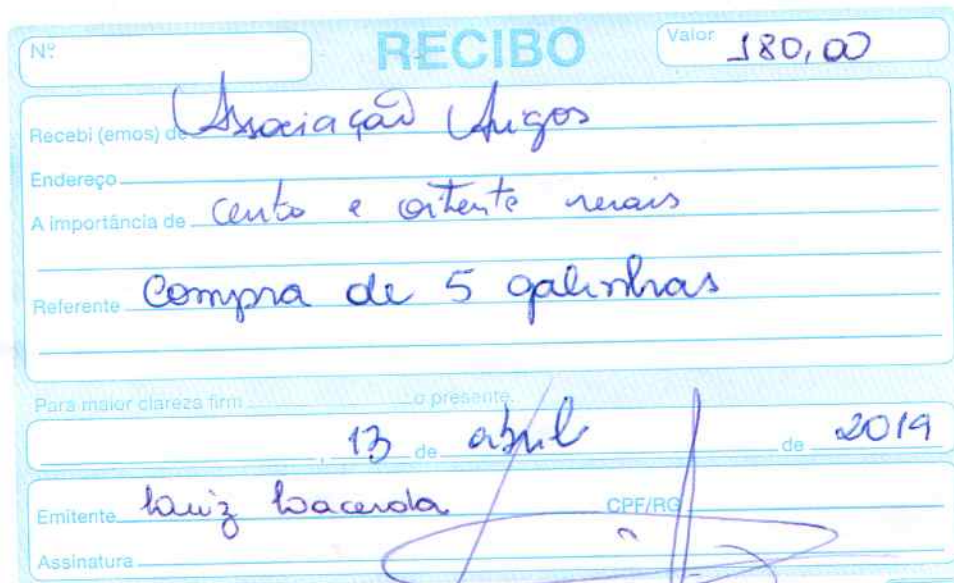 Nº RECIBO Valor 180,00
Recebi (emos) de Associação Amigos
Endereço
A importância de cento e oitenta reais
Referente Compra de 5 galinhas
Para maior clareza firm o presente.
, 13 de abril de 2019
Emitente Luiz Lacerda CPF/RG
Assinatura